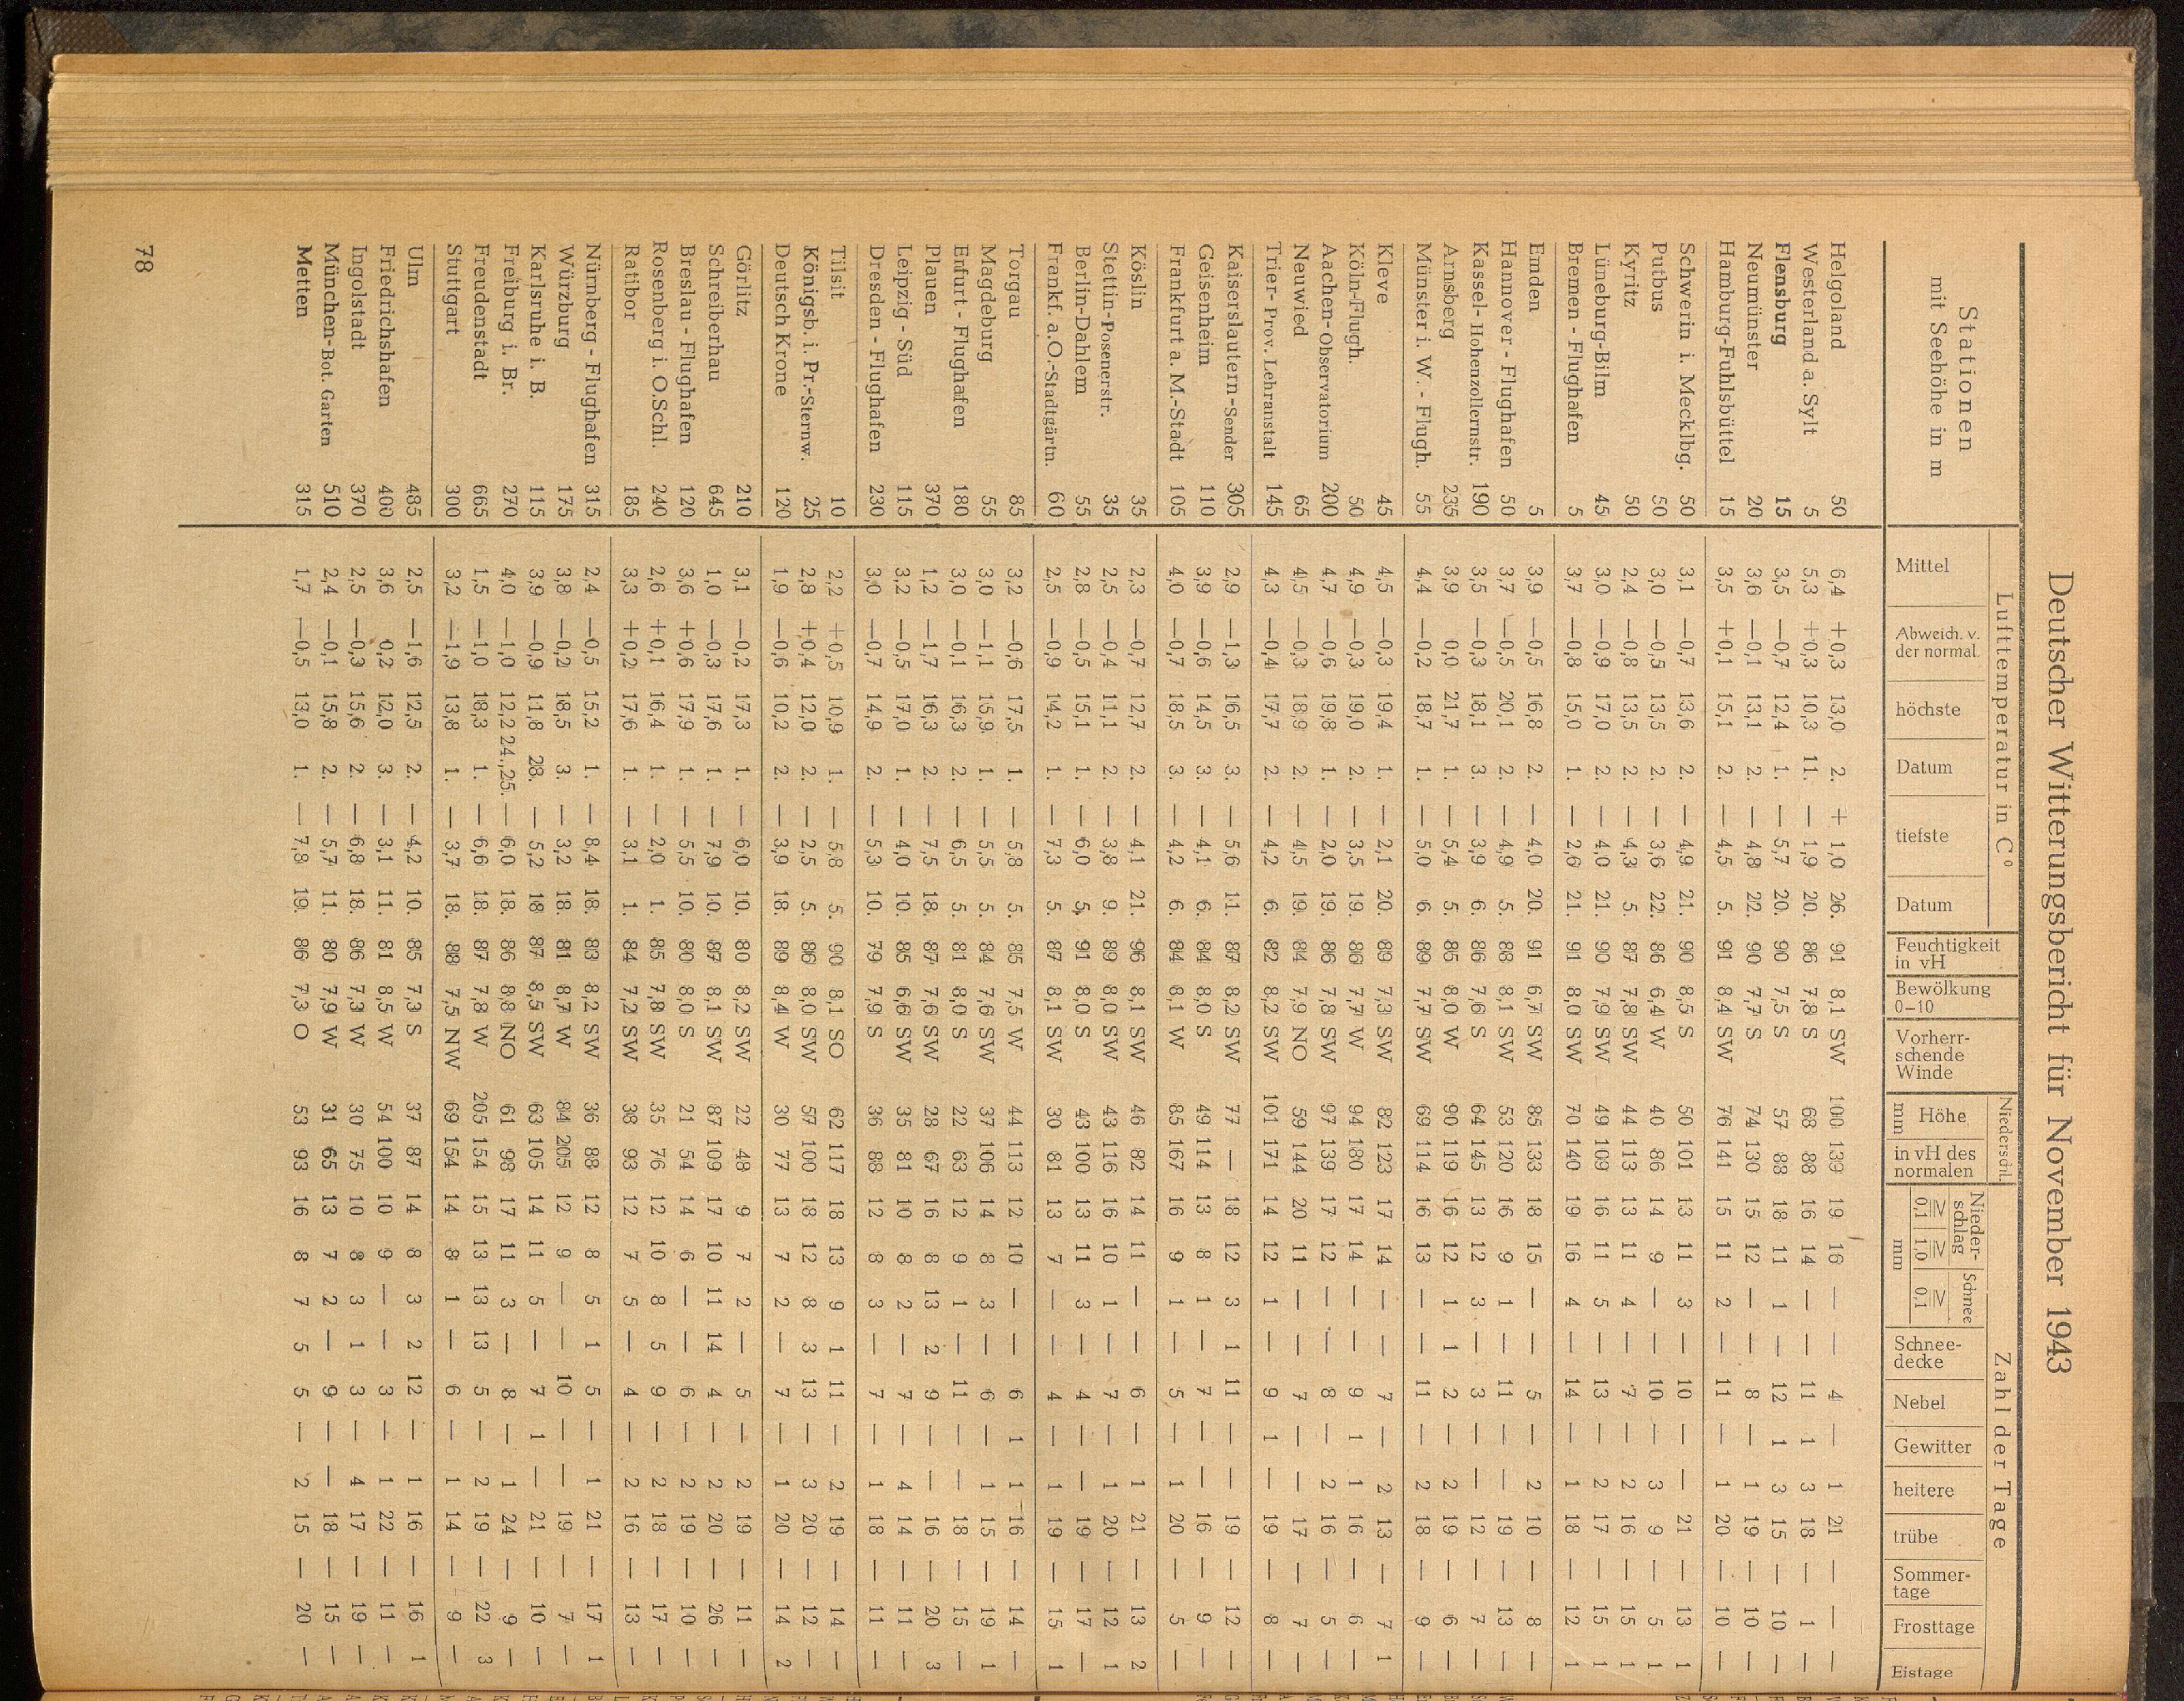 Deutscher Witterungsbericht für November 1943
Stationen mit Seehöhe in m
Lufttemperatur in C°
Mittel
Abweich. v. der normal.
höchste
Datum
tiefste
Datum
Feuchtigkeit in vH
Bewölkung 0–10
Vorherrschende Winde
Niederschl.
Höhe mm
in vH des normalen
Zahl der Tage
Niederschlag ≥ 0,1 ≥ 1,0 mm
Schnee ≥ 0,1
Schneedecke
Nebel
Gewitter
heitere
trübe
Sommertage
Frosttage
Eistage
Helgoland 50 6,4 +0,3 13,0 2. + 1,0 26. 91 8,1 SW 100 139 19 16 — — 4 — 1 21 — — —
Westerland a. Sylt 5 5,3 +0,3 10,3 11. — 1,9 20. 86 7,8 S 68 88 16 14 — — 11 1 3 18 — 1 —
Flensburg 15 3,5 —0,7 12,4 1. — 5,7 20. 90 7,5 S 57 83 18 11 1 — 12 1 3 15 — 10 —
Neumünster 20 3,6 —0,1 13,1 2. — 4,8 22. 90 7,7 S 74 130 15 12 — — 8 — 1 19 — 10 —
Hamburg-Fuhlsbüttel 15 3,5 +0,1 15,1 2. — 4,5 5. 91 8,4 SW 76 141 15 11 2 — 11 — 1 20 — 10 —
Schwerin i. Mecklbg. 50 3,1 —0,7 13,6 2. — 4,9 21. 90 8,5 S 50 101 13 11 3 — 10 — — 21 — 13 1
Putbus 50 3,0 —0,5 13,5 2. — 3,6 22. 86 6,4 W 40 86 14 9 — — 10 — 3 9 — 5 1
Kyritz 50 2,4 —0,8 13,5 2. — 4,3 5. 87 7,8 SW 44 113 13 11 4 — 7 — 2 16 — 15 1
Lüneburg-Bilm 45 3,0 —0,9 17,0 2. — 4,0 21. 90 7,9 SW 49 109 16 11 5 — 13 — 2 17 — 15 1
Bremen - Flughafen 5 3,7 —0,8 15,0 1. — 2,6 21. 91 8,0 SW 70 140 19 16 4 — 14 — 1 18 — 12 1
Emden 5 3,9 —0,5 16,8 2. — 4,0 20. 91 6,7 SW 85 133 18 15 — — 5 — 2 10 — 8 —
Hannover - Flughafen 50 3,7 —0,5 20,1 2. — 4,9 5. 88 8,1 SW 53 120 16 9 1 — 11 — — 19 — 13 —
Kassel - Hohenzollernstr. 190 3,5 —0,3 18,1 3. — 3,9 6. 86 7,6 S 64 145 13 12 3 — 3 — — 12 — 7 —
Arnsberg 235 3,9 0,0 21,7 1. — 5,4 5. 85 8,0 W 90 119 16 12 1 1 2 — 2 19 — 6 —
Münster i. W. - Flugh. 55 4,4 —0,2 18,7 1. — 5,0 6. 89 7,7 SW 69 114 16 13 — — 11 — 2 18 — 9 —
Kleve 45 4,5 —0,3 19,4 1. — 2,1 20. 89 7,3 SW 82 123 17 14 — — 7 — 2 13 — 7 1
Köln-Flugh. 50 4,9 —0,3 19,0 2. — 3,5 19. 86 7,7 W 94 180 17 14 — — 9 1 1 16 — 6 —
Aachen-Observatorium 200 4,7 —0,6 19,8 1. — 2,0 19. 86 7,8 SW 97 139 17 12 — — 8 — 2 16 — 5 —
Neuwied 65 4,5 —0,3 18,9 2. — 4,5 19. 84 7,9 NO 59 144 20 11 — — 7 — — 17 — 7 —
Trier - Prov. Lehranstalt 145 4,3 —0,4 17,7 2. — 4,2 6. 82 8,2 SW 101 171 14 12 1 — 9 1 — 19 — 8 —
Kaiserslautern-Sender 305 2,9 —1,3 16,5 3. — 5,6 11. 87 8,2 SW 77 — 18 12 3 1 11 — — 19 — 12 —
Geisenheim 110 3,9 —0,6 14,5 3. — 4,1 6. 84 8,0 S 49 114 13 8 1 — 7 — — 16 — 9 —
Frankfurt a. M.-Stadt 105 4,0 —0,7 18,5 3. — 4,2 6. 84 8,1 W 85 167 16 9 1 — 5 — 1 20 — 5 —
Köslin 35 2,3 —0,7 12,7 2. — 4,1 21. 96 8,1 SW 46 82 14 11 — — 6 — 1 21 — 13 2
Stettin-Posenerstr. 35 2,5 —0,4 11,1 2. — 3,8 9. 89 8,0 SW 43 116 16 10 1 — 7 — 1 20 — 12 1
Berlin-Dahlem 55 2,8 —0,5 15,1 1. — 6,0 5. 91 8,0 S 43 100 13 11 3 — 4 — — 19 — 17 —
Frankf. a.O.-Stadtgärtn. 60 2,5 —0,9 14,2 1. — 7,3 5. 87 8,1 SW 30 81 13 7 — — 4 — 1 19 — 15 1
Torgau 85 3,2 —0,6 17,5 1. — 5,8 5. 85 7,5 W 44 113 12 10 — — 6 1 1 16 — 14 —
Magdeburg 55 3,0 —1,1 15,9 1. — 5,5 5. 84 7,6 SW 37 106 14 8 3 — 6 — 1 15 — 19 1
Erfurt - Flughafen 180 3,0 —0,1 16,3 2. — 6,5 5. 81 8,0 S 22 63 12 9 1 — 11 — — 18 — 15 —
Plauen 370 1,2 —1,7 16,3 2. — 7,5 18. 87 7,6 SW 28 67 16 8 13 2 9 — — 16 — 20 3
Leipzig - Süd 115 3,2 —0,5 17,0 1. — 4,0 10. 85 6,6 SW 35 81 10 8 2 — 7 — 4 14 — 11 —
Dresden - Flughafen 230 3,0 —0,7 14,9 2. — 5,3 10. 79 7,9 S 36 88 12 8 3 — 7 — 1 18 — 11 —
Tilsit 10 2,2 +0,5 10,9 1. — 5,8 5. 90 8,1 SO 62 117 18 13 9 1 11 — 2 19 — 14 —
Königsb. i. Pr.-Sternw. 25 2,8 +0,4 12,0 2. — 2,5 5. 86 8,0 SW 57 100 18 12 8 3 13 — 3 20 — 12 —
Deutsch Krone 120 1,9 —0,6 10,2 2. — 3,9 18. 89 8,4 W 30 77 13 7 2 — 7 — 1 20 — 14 2
Görlitz 210 3,1 —0,2 17,3 1. — 6,0 10. 80 8,2 SW 22 48 9 7 2 — 5 — 2 19 — 11 —
Schreiberhau 645 1,0 —0,3 17,6 1. — 7,9 10. 87 8,1 SW 87 109 17 10 11 14 4 — 2 20 — 26 —
Breslau - Flughafen 120 3,6 +0,6 17,9 1. — 5,5 10. 80 8,0 S 21 54 14 6 — — 6 — 2 19 — 10 —
Rosenberg i. O.Schl. 240 2,6 +0,1 16,4 1. — 2,0 1. 85 7,8 SW 35 76 12 10 8 5 9 — 2 18 — 17 —
Ratibor 185 3,3 +0,2 17,6 1. — 3,1 1. 84 7,2 SW 38 93 12 7 5 — 4 — 2 16 — 13 —
Nürnberg - Flughafen 315 2,4 —0,5 15,2 1. — 8,4 18. 83 8,2 SW 36 88 12 8 5 1 5 — 1 21 — 17 1
Würzburg 175 3,8 —0,2 18,5 3. — 3,2 18. 81 8,7 W 84 205 12 9 — — 10 — — 19 — 7 —
Karlsruhe i. B. 115 3,9 —0,9 11,8 28. — 5,2 18 87 8,5 SW 63 105 14 11 5 — 7 1 — 21 — 10 —
Freiburg i. Br. 270 4,0 —1,0 12,2 24.,25. — 6,0 18. 86 8,8 NO 61 98 17 11 3 — 8 — 1 24 — 9 —
Freudenstadt 665 1,5 —1,0 18,3 1. — 6,6 18. 87 7,8 W 205 154 15 13 13 13 5 — 2 19 — 22 3
Stuttgart 300 3,2 —1,9 13,8 1. — 3,7 18. 88 7,5 NW 69 154 14 8 1 — 6 — 1 14 — 9 —
Ulm 485 2,5 —1,6 12,5 2. — 4,2 10. 85 7,3 S 37 87 14 8 3 2 12 — 1 16 — 16 1
Friedrichshafen 400 3,6 0,2 12,0 3. — 3,1 11. 81 8,5 W 54 100 10 9 — — 3 — 1 22 — 11 —
Ingolstadt 370 2,5 —0,3 15,6 2. — 6,8 18. 86 7,3 W 30 75 10 8 3 1 3 — 4 17 — 19 —
München-Bot. Garten 510 2,4 —0,1 15,8 2. — 5,7 11. 80 7,9 W 31 65 13 7 2 — 9 — — 18 — 15 —
Metten 315 1,7 —0,5 13,0 1. — 7,8 19. 86 7,3 O 53 93 16 8 7 5 5 — 2 15 — 20 —
78